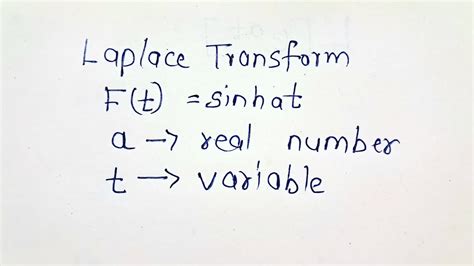 Laplace Transform
F(t) = sinhat
a → real number
t → variable